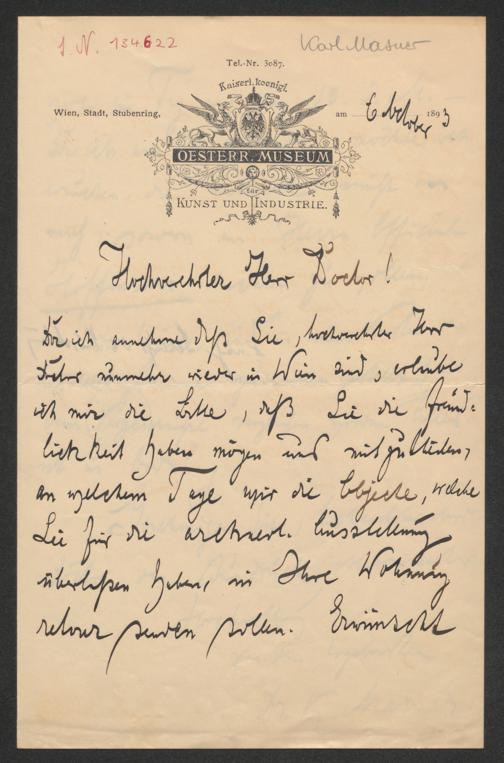 I. N. 134622
Karl Masner
Tel.-Nr. 3087.
Kaiserl. koenigl.
Wien, Stadt, Stubenring,
am 6 October 1893
OESTERR. MUSEUM
für
KUNST UND INDUSTRIE.
Hochverehrter Herr Doctor!
Da ich annehme daß Sie, hochverehrter Herr
Doctor nunmehr wieder in Wien sind, erlaube
ich mir die Bitte, daß Sie die Freund-
lichkeit haben mögen uns mitzutheilen,
an welchem Tage wir die Objecte, welche
Sie für die Ausstellung
überlaßen haben, in Ihre Wohnung
retour senden sollen. Erwünscht